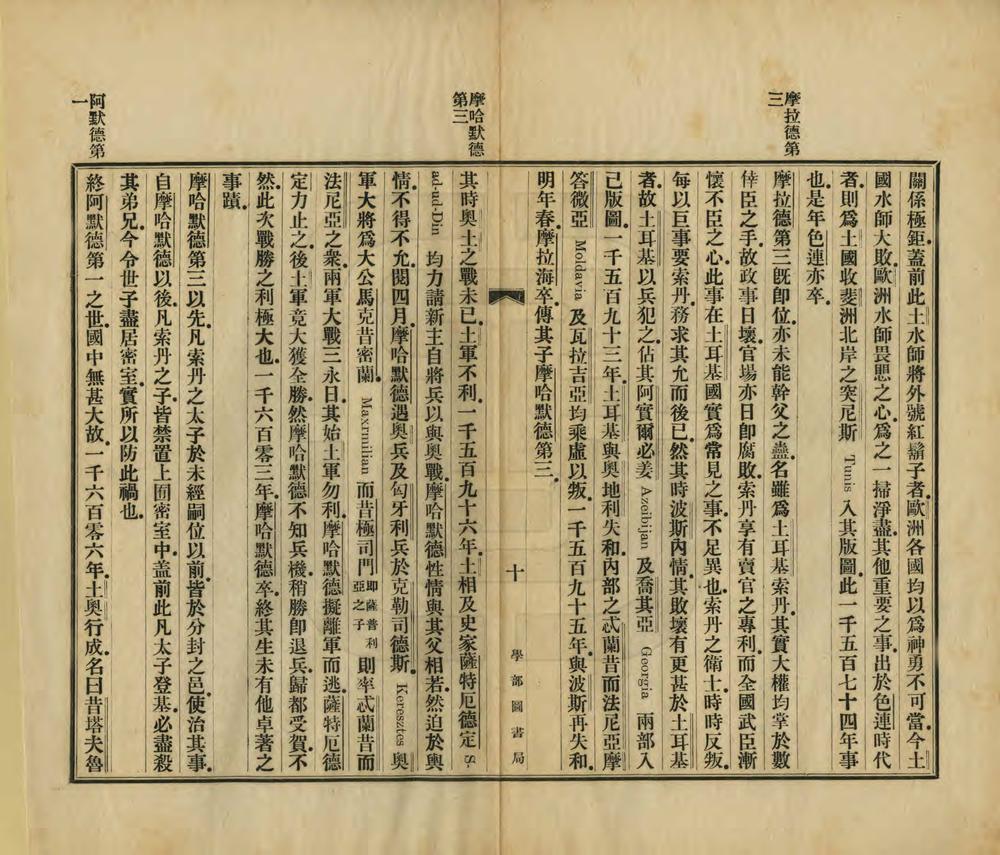 摩拉德第
三
關係極鉅蓋前此土水師將外號紅鬍子者歐洲各國均以爲神勇不可當今土
國水師大敗歐洲水師畏恩之心爲之一掃淨盡其他重要之事出於色連時代
者則爲土國收斐洲北岸之突尼斯 Tunis 入其版圖此一千五百七十四年事
也是年色連亦卒
摩拉德第三旣卽位亦未能幹父之蠱名雖爲土耳基索丹其實大權均掌於數
倖臣之手故政事日壞官場亦日卽腐敗索丹享有賣官之專利而全國武臣漸
懷不臣之心此事在土耳基國實爲常見之事不足異也索丹之衛士時時反叛
每以巨事要索丹務求其允而後已然其時波斯內情其敗壞有更甚於土耳基
者故土耳基以兵犯之佔其阿實爾必姜 Azeibijan 及喬其亞 Georgia 兩部入
己版圖一千五百九十三年土耳基與奧地利失和內部之忒蘭昔而法尼亞摩
答微亞 Moldavia 及瓦拉吉亞均乘虛以叛一千五百九十五年與波斯再失和
明年春摩拉海卒傳其子摩哈默德第三
十
學部圖書局
摩哈默德
第三
其時奧土之戰未已土軍不利一千五百九十六年土相及史家薩特厄德定 S-
ad-ud-Din 均力請新王自將兵以與奧戰摩哈默德性情與其父相若然迫於輿
情不得不允閱四月摩哈默德遇奧兵及匈牙利兵於克勒司德斯 Keresztes 奧
軍大將爲大公馬克昔密蘭 Maxrmilian 而昔極司門卽薩普利亞之子則率忒蘭昔而
法尼亞之衆兩軍大戰三永日其始土軍勿利摩哈默德擬離軍而逃薩特厄德
定力止之後土軍竟大獲全勝然摩哈默德不知兵機稍勝卽退兵歸都受賀不
然此次戰勝之利極大也一千六百零三年摩哈默德卒終其生未有他卓著之
事蹟
摩哈默德第三以先凡索丹之太子於未經嗣位以前皆於分封之邑使治其事
自摩哈默德以後凡索丹之子皆禁置上囿密室中蓋前此凡太子登基必盡殺
其弟兄今令世子盡居密室實所以防此禍也
阿默德第
一
終阿默德第一之世國中無甚大故一千六百零六年土奧行成名曰昔塔夫魯